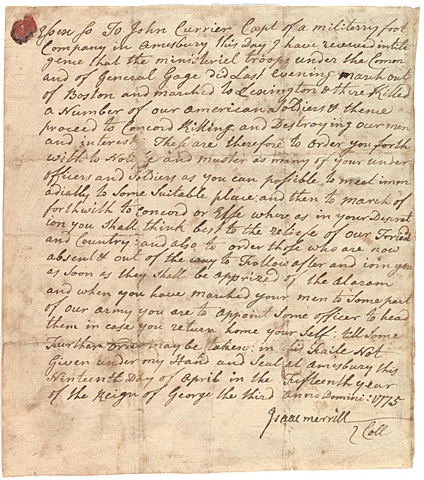 Essex Ss To John Currier Capt of a militerry foot
Company in Amesbury this Day I have received intile
gence that the ministeriel troops under the Comm
and of General Gage did Last evening march out
of Boston and marched to Lexington & there Killed
a Number of our american Soldiers & thence
proceed to Concord Killing and Destroying our men
and interest These are therefore to order you forth
with to Notify and muster as many of your under
officers and Soldiers as you can possible to meet imm
adially to Some Suitable place and then to march of
forthwith to Concord or Else where as in your Descrat
ion you Shall think best to the reliefe of our Friends
and Country: and also to order those who are now
absent & out of the way to Follow after and ioin you
as soon as they shall be apprized of the Alaram
and when you have marched your men to Some part
of our army you are to appoint some officer to head
them in case you return home your Self: till some
Further order may be taken: in this Faile Not
Given under my Hand and Seal at Amesbury this
Ninteenth Day of April in the Fifteenth year
of the Reign of George the third Anno Domini: 1775
Isaac merrill
Coll